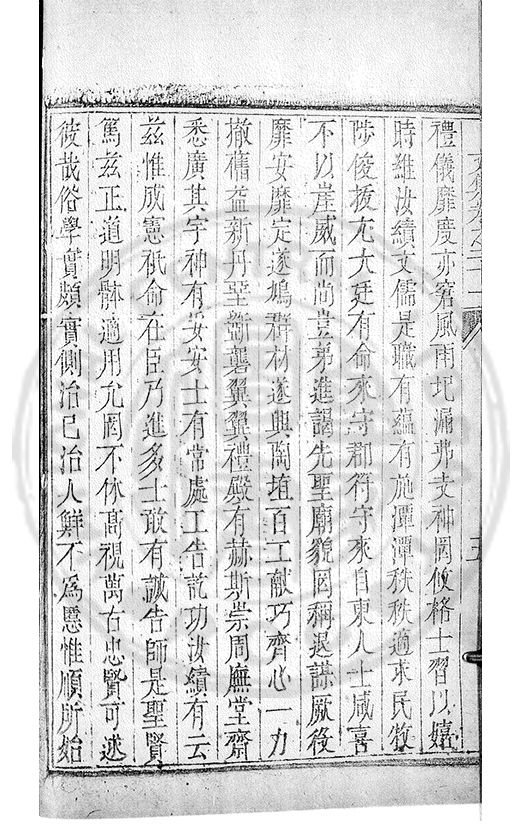 禮儀靡度亦窘風雨圮漏弗支神罔攸格士習以嬉
時維汝績文儒是職有蘊有施潭潭秩秩適求民牧
陟俊拔尤大廷有命來守郡符守來自東人士咸喜
不以崖威而尚豈弟進謁先聖廟貌罔稱退謀厥役
靡安靡定遂鳩群材遂興陶埴百工献巧齊心一力
撤舊益新丹堊斵礱翼翼禮殿有赫斯崇周廡堂齋
悉廣其宇神有妥安士有常處工告訖功汝績有云
茲惟成憲祇命在臣乃進多士敢有誠告師是聖賢
篤茲正道明體適用允罔不休高視萬古忠賢可述
彼哉俗學實頗實側治己治人鮮不為慝惟順所始
五